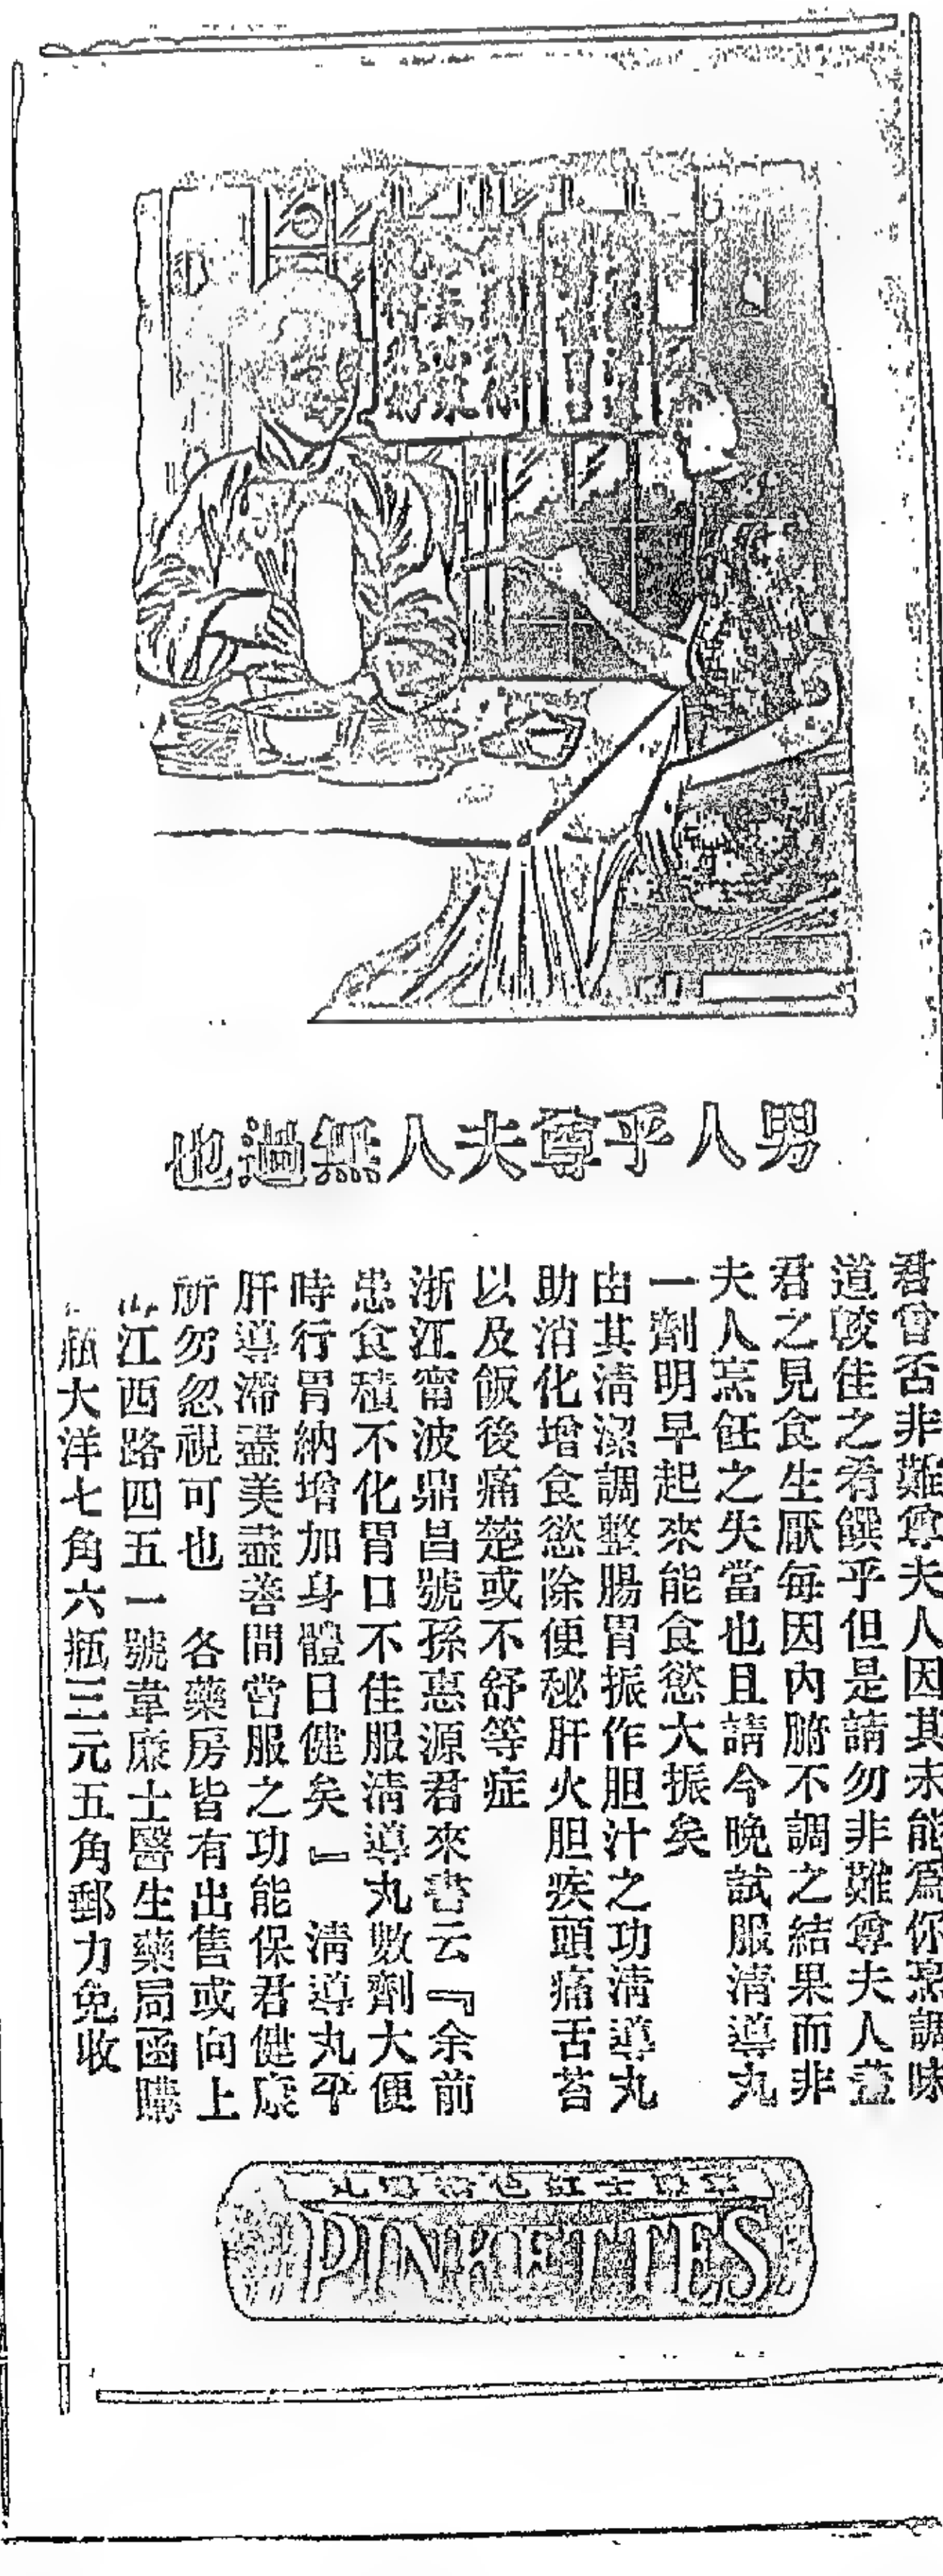 男人乎尊夫人無過也
君曾否非難尊夫人因其未能爲你烹調味
道較佳之肴饌乎但是請勿非難尊夫人蓋
君之見食生厭每因內腑不調之結果而非
夫人烹飪之失當也且請今晚試服清導丸
一劑明早起來能食慾大振矣
由其清潔調整腸胃振作胆汁之功清導丸
助消化增食慾除便秘肝火胆疾頭痛舌苔
以及飯後痛楚或不舒等症
浙江甯波鼎昌號孫惠源君來書云『余前
患食積不化胃口不佳服清導丸數劑大便
時行胃納增加身體日健矣』 清導丸平
肝導滯盡美盡善間嘗服之功能保君健康
所勿忽視可也 各藥房皆有出售或向上
江西路四五一號韋廉士醫生藥局函購
瓶大洋七角六瓶三元五角郵力免收
PINKETTES